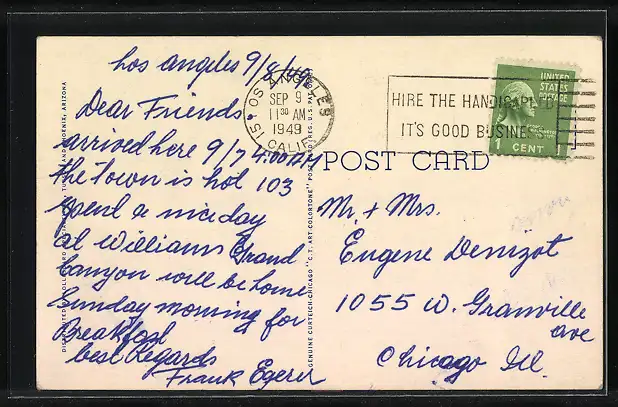 Los Angeles 9/8/49
Dear Friends
arrived here 9/7 4:00 AM
the Town is hot 103
spend a nice day
at Williams Grand
Canyon will be home
Sunday morning for
Breakfast
best Regards
Frank Egerer
LOS ANGELES
SEP 9
11 30 AM
1949
CALIF.
15
HIRE THE HANDICAPPED
IT'S GOOD BUSINESS
UNITED
STATES
POSTAGE
1 CENT
POST CARD
Mr. + Mrs.
Eugene Denizot
1055 W. Granville
ave
Chicago Ill.
GENUINE CURTEICH-CHICAGO "C.T. ART-COLORTONE" POST CARD (REG. U.S. PAT. OFF.)